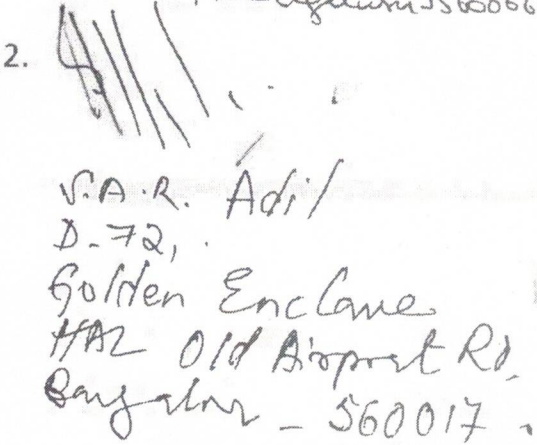 560066
2.
S.A.R. Adil
D-72,
Golden Enclave
HAL Old Airport Rd,
Bangalore - 560017.